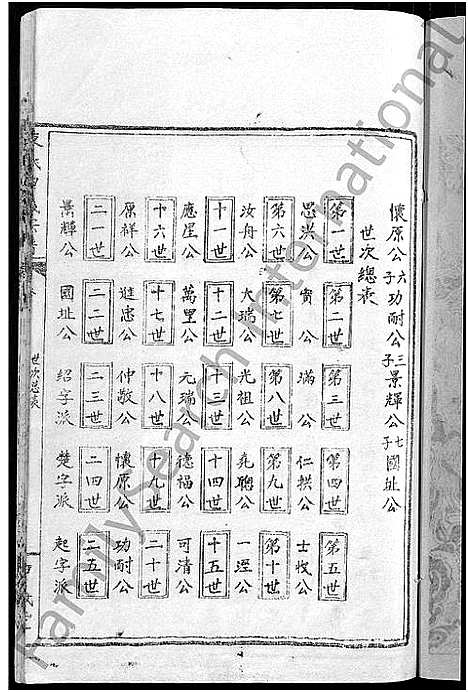 懷原公六子功耐公三子景輝公七子國址公
世次總表
第一世 第二世 第三世 第四世 第五世
思洪公 實公 滿公 仁拱公 士忮公
第六世 第七世 第八世 第九世 第十世
汝舟公 大瑞公 光祖公 堯聰公 一溼公
十一世 十二世 十三世 十四世 十五世
應星公 萬里公 元瑞公 德福公 可清公
十六世 十七世 十八世 十九世 二十世
原祥公 進忠公 仲敬公 懷原公 功耐公
二一世 二二世 二三世 二四世 二五世
景輝公 國址公 紹字派 楚字派 起字派
世次总表
FamilySearch International